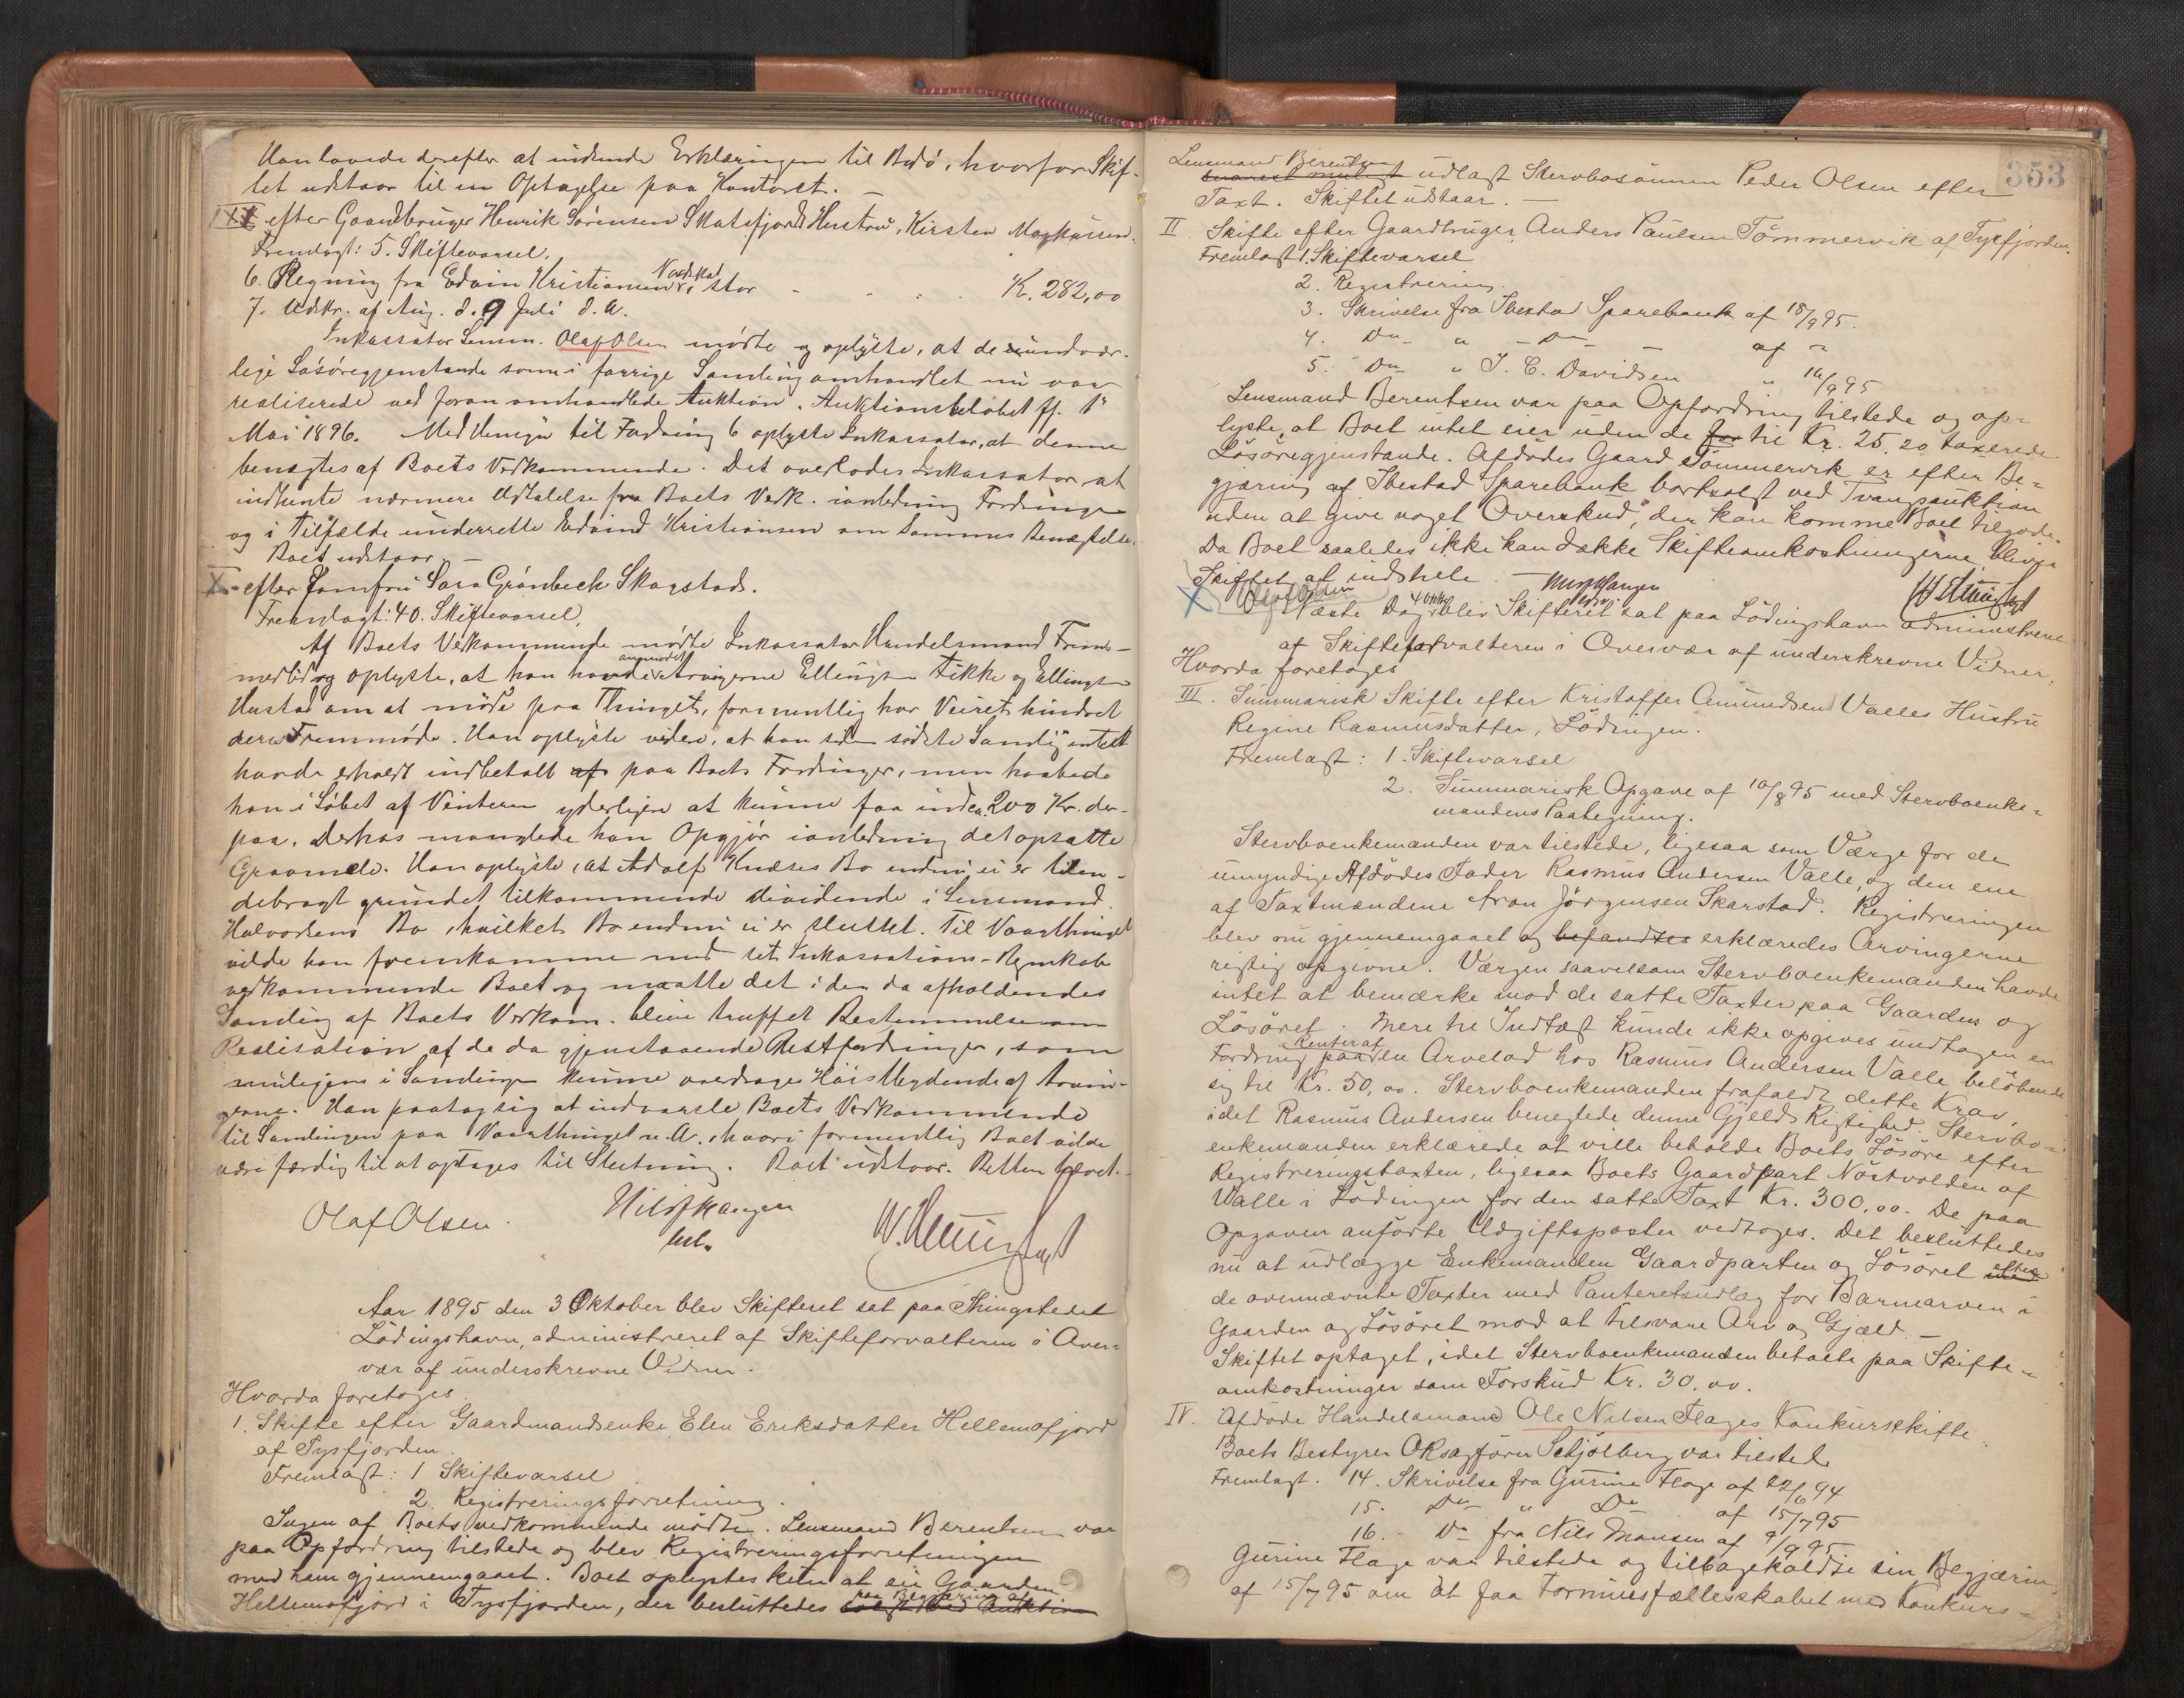 Han lovede derefter at indsende Erklæringen til Bodø, hvorfor Skif-
tet udstaar til en Optagelse paa Kontoret. —
efter Gaardbruger Henrik Sørensen Skatsfjords Hustru, Kirsten Markussen.
Fremlagt: 5. Skiftevarsel.
6. Regning fra Edvin Kristiansen, K. 282,00
7. Udskr. af Aug. d. 9 Juli d. A.
Inkassator Lensm. Olaf Olsen mødte og oplyste, at de uundvær-
lige Løsøregjenstande som i forrige Samling omhandlet nu var
realiserede ved foran omhandlede Auktion. Auktionsbeløbet ff. 1ste
Mai 1896. Med Hensyn til Fordring 6 oplyste Inkassator, at denne
benægtes af Boets Vedkommende. Det overlodes Inkassator at
indhente nærmere Udtalelse fra Boets Vedk. ianledning Fordringen
og i Tilfælde underrette Edvind Kristiansen om sammes Benægtelse.
Boet udstaar. —
X efter Jomfru Sara Grønbech Skarstad.
Fremlagt: 40. Skiftevarsel.
Af Boets Vedkommende mødte Inkassator Handelsmand
og oplyste, at han havde anmodet Arvingerne Ellingsen Fikke og Ellingsen
Hustad om at møde paa Thinget, formentlig har Veiret hindret
deres Fremmøde. Han oplyste videre, at han siden sidste Samling intet
havde erholdt indbetalt af paa Boets Fordringer, men haabede
han i Løbet af Vinteren yderligere at kunne faa ind ca. 200 Kr. der-
paa. Derhos manglede han Opgjør ianledning det opsatte
Gravmæle. Han oplyste, at Adolf Knæses Bo endnu ei er tilen-
debragt grundet tilkommende Dividende i Lensmand
Halvorsens Bo, hvilket Bo endnu ei er sluttet. Til Vaarthinget
vilde han fremkomme med sit Inkassations-Regnskab
vedkommende Boet og maatte det i den da afholdendes
Samling af Boets Vedkom. blive truffet Bestemmelse om
Realisation af de da gjenstaaende Restfordringer, som
muligens i Samlingen kunne overdrages Høistbydende af Arvin-
gerne. Han paatog sig at indvarsle Boets Vedkommende
til Samlingen paa Vaarthinget n. A., hvori formentlig Boet vilde
være færdig til at optages til Slutning. Boet udstaar. Retten hævet.
Olaf Olsen.
Aar 1895 den 3 Oktober blev Skifteret sat paa Thingstedet
Lødingshavn, administreret af Skifteforvalteren i Over-
vær af underskrevne Vidner.
Hvorda foretoges
1. Skifte efter Gaardmandsenke Elen Eriksdatter Hellemofjord
af Tysfjorden.
Fremlagt: 1 Skiftevarsel
2. Registreringsforretning.
Ingen af Boets vedkommende mødte. Lensmand Berentsen var
paa Opfordring tilstede og blev Registreringsforretningen
med ham gjennemgaaet. Boet oplystes kun at eie Gaarden
paa Begjæring af
Hellemofjord i Tysfjorden, der besluttedes solgt ved Auktion
353
Lensmand Berentsen
udlagt Stervbosønnen Peder Olsen efter
Taxt. Skiftet udstaar. —
II Skifte efter Gaardbruger Anders Paulsen Tømmervik af Tysfjorden.
Fremlagt 1. Skiftevarsel
2. Registrering
3. Skrivelse fra Ibestad Sparebank af 18/9 95.
4. Do " Do af "
5. Do " J. C. Davidsen " 16/9 95
Lensmand Berentsen var paa Opfordring tilstede og op-
lyste, at Boet intet eier uden de for til Kr. 25.20 taxerede
Løsøregjenstande. Afdødes Gaard Tømmervik er efter Be-
gjæring af Ibestad Sparebank bortsolgt ved Tvangsauktion
uden at give noget Overskud, der kan komme Boet tilgode.
Da Boet saaledes ikke kan dække Skifteomkostningerne, bliver
Skiftet at indstille. —
Næste Dag 4 Oktbr blev Skifteret sat paa Lødingshavn administreret
af Skifteforvalteren i Overvær af underskrevne Vidner.
Hvorda foretoges
III. Summarisk Skifte efter Kristoffer Amundsen Valles Hustru
Regine Rasmusdatter, Lødingen.
Fremlagt: 1. Skiftevarsel
2. Summarisk Opgave af 10/8 95 med Stervboenke-
mandens Paategning.
Stervboenkemanden var tilstede, ligesaa som Værge for de
umyndige Afdødes Fader Rasmus Andersen Valle, og den ene
af Taxtmændene Aron Jørgensen Skarstad. Registreringen
blev nu gjennemgaaet og befandtes erklæredes Arvingerne
rigtig opgivne. Værgen saavelsom Stervboenkemanden havde
intet at bemærke mod de satte Taxter paa Gaarden og
Løsøret. Mere til Indtægt kunde ikke opgives undtagen en
Renter af
Fordring paa den Arvelod hos Rasmus Andersen Valle beløbende
sig til Kr. 50,00. Stervboenkemanden frafaldt dette Krav,
idet Rasmus Andersen benegtede denne Gjelds Rigtighed. Stervbo-
enkemanden erklærede at ville beholde Boets Løsøre efter
Registreringstaxten, ligesaa Boets Gaardpart Nøstvolden af
Valle i Lødingen for den satte Taxt Kr. 300,00. De paa
Opgaven anførte Udgiftsposter vedtoges. Det besluttedes
nu at udlægge Enkemanden Gaardparten og Løsøret efter
de ovennævnte Taxter med Panteretsudlæg for Barnearven i
Gaarden og Løsøret mod at tilsvare Arv og Gjæld. —
Skiftet optaget, idet Stervboenkemanden betalte paa Skifte-
omkostninger som Forskud Kr. 30,00.
IV. Afdøde Handelsmand Ole Nilsen Flages Konkursskifte
Boets Bestyrer ORsagfører Schjølberg var tilstede
Fremlagt. 14. Skrivelse fra Gurine Flage af 22/6 94
15. Do " Do af 15/7 95
16. Do fra Nils Monsen af 9/9 95
Gurine Flage var tilstede og tilbagekaldte sin Begjæring
af 15/7 95 om at faa Formuesfællesskabet med Konkurs-